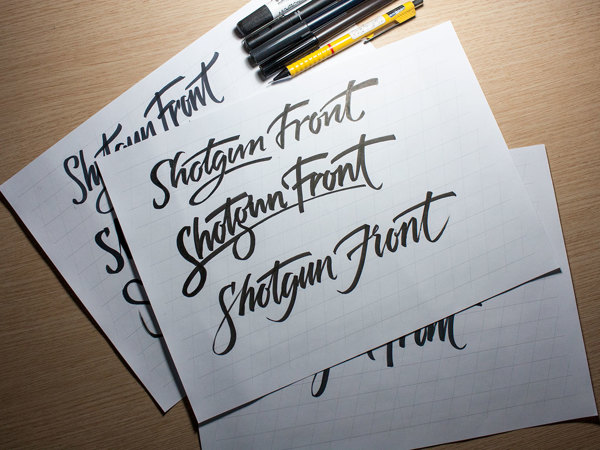 Shotgun Front
Shotgun Front
Shotgun Front
Shotgun Front